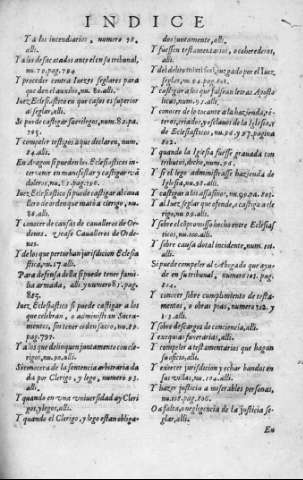 INDICE
Y a los incendiarios, numero 78.
alli.
Y a los desacatados ante el en su tribunal,
nu.79.pag.794
Y proceder contra Iuezes seglares para
que den el auxilio, nu.80. alli.
Iuez Eclesiastico en que casos es superior
a seglar, alli.
Si puede castigar sacrilegos, num.82.pa.
795.
Y compeler testigos a que declaren, num.
84. alli.
En Aragon si pueden los Eclesiasticos in-
tervenir en manifestar y castigar va
doleros, nu.
Iuez Eclesiastico si puede castigar al cava
llero de orden que matò a clerigo, nu.
86.alli.
Y conocer de causas de cavalleros de Or-
denes. Cavalleros de
Ordenes.
Y de los que perturban jurisdicion Ecclesia
stica, nu.87.alli.
Para defensa della si puede tener fami-
lia armada, alli y numero 87. pag.
Iuez Eclesiastico si puede castigar a los
que celebran, o administran Sacra-
mentos, sin tener orden sacro, nu.89.
pag.797.
Y a los que delinquen juntamente con cle-
rigos, nu.90.alli.
Si remocera de la sentencia arbitraria da
da por Clerigo, y lego, numero 93.
alli.
Y quando en una universidad ay Cleri
gos, y legos, alli.
Y quando el Clerigo, y lego estàn obliga-
dos juntamente, alli.
Y si fuessen testamentarios, o cobrederos,
alli.
Y del delito juzgado por el Iuez
seglar, nu.94.
Y castigar a los que falsan letras Aposto
licas, num.95.alli.
Y conocer de lo tocante a la hazienda,
y esclavos de la Iglesia, y
de Eclesiasticos, nu.96.y 97.pagina
802.
Y quando la Iglesia fuesse gravada con
tributos, dicho, num.96.
Y si el lego administrasse hazienda de
Iglesia, nu.98.alli.
Y castigar a los assassinos, nu.99.pa.
Y al Iuez seglar que ofende, o castiga a cle
rigo, nu. alli.
Y sobre el compromisso hecho entre Eclesias
ticos, nu. alli.
Y sobre causa dotal incidente, num.101.
alli.
Si puede compeler al Abogado que ayu-
de en su tribunal, numero 103. pag.
Y conocer sobre cumplimiento de testa-
mentos, o obras pias, numero 112. y
113. alli.
Y sobre descargos de conciencia, alli.
Y exequias funerarias, alli.
Y compeler a testamentarios que hagan
su oficio, alli.
Y exercer jurisdicion y echar bandos en
sus villas, nu.114.alli.
Y hazer justicia a miserables personas,
nu.118.pag.
O a falta, o negligencia de la justicia se-
glar, alli.
En